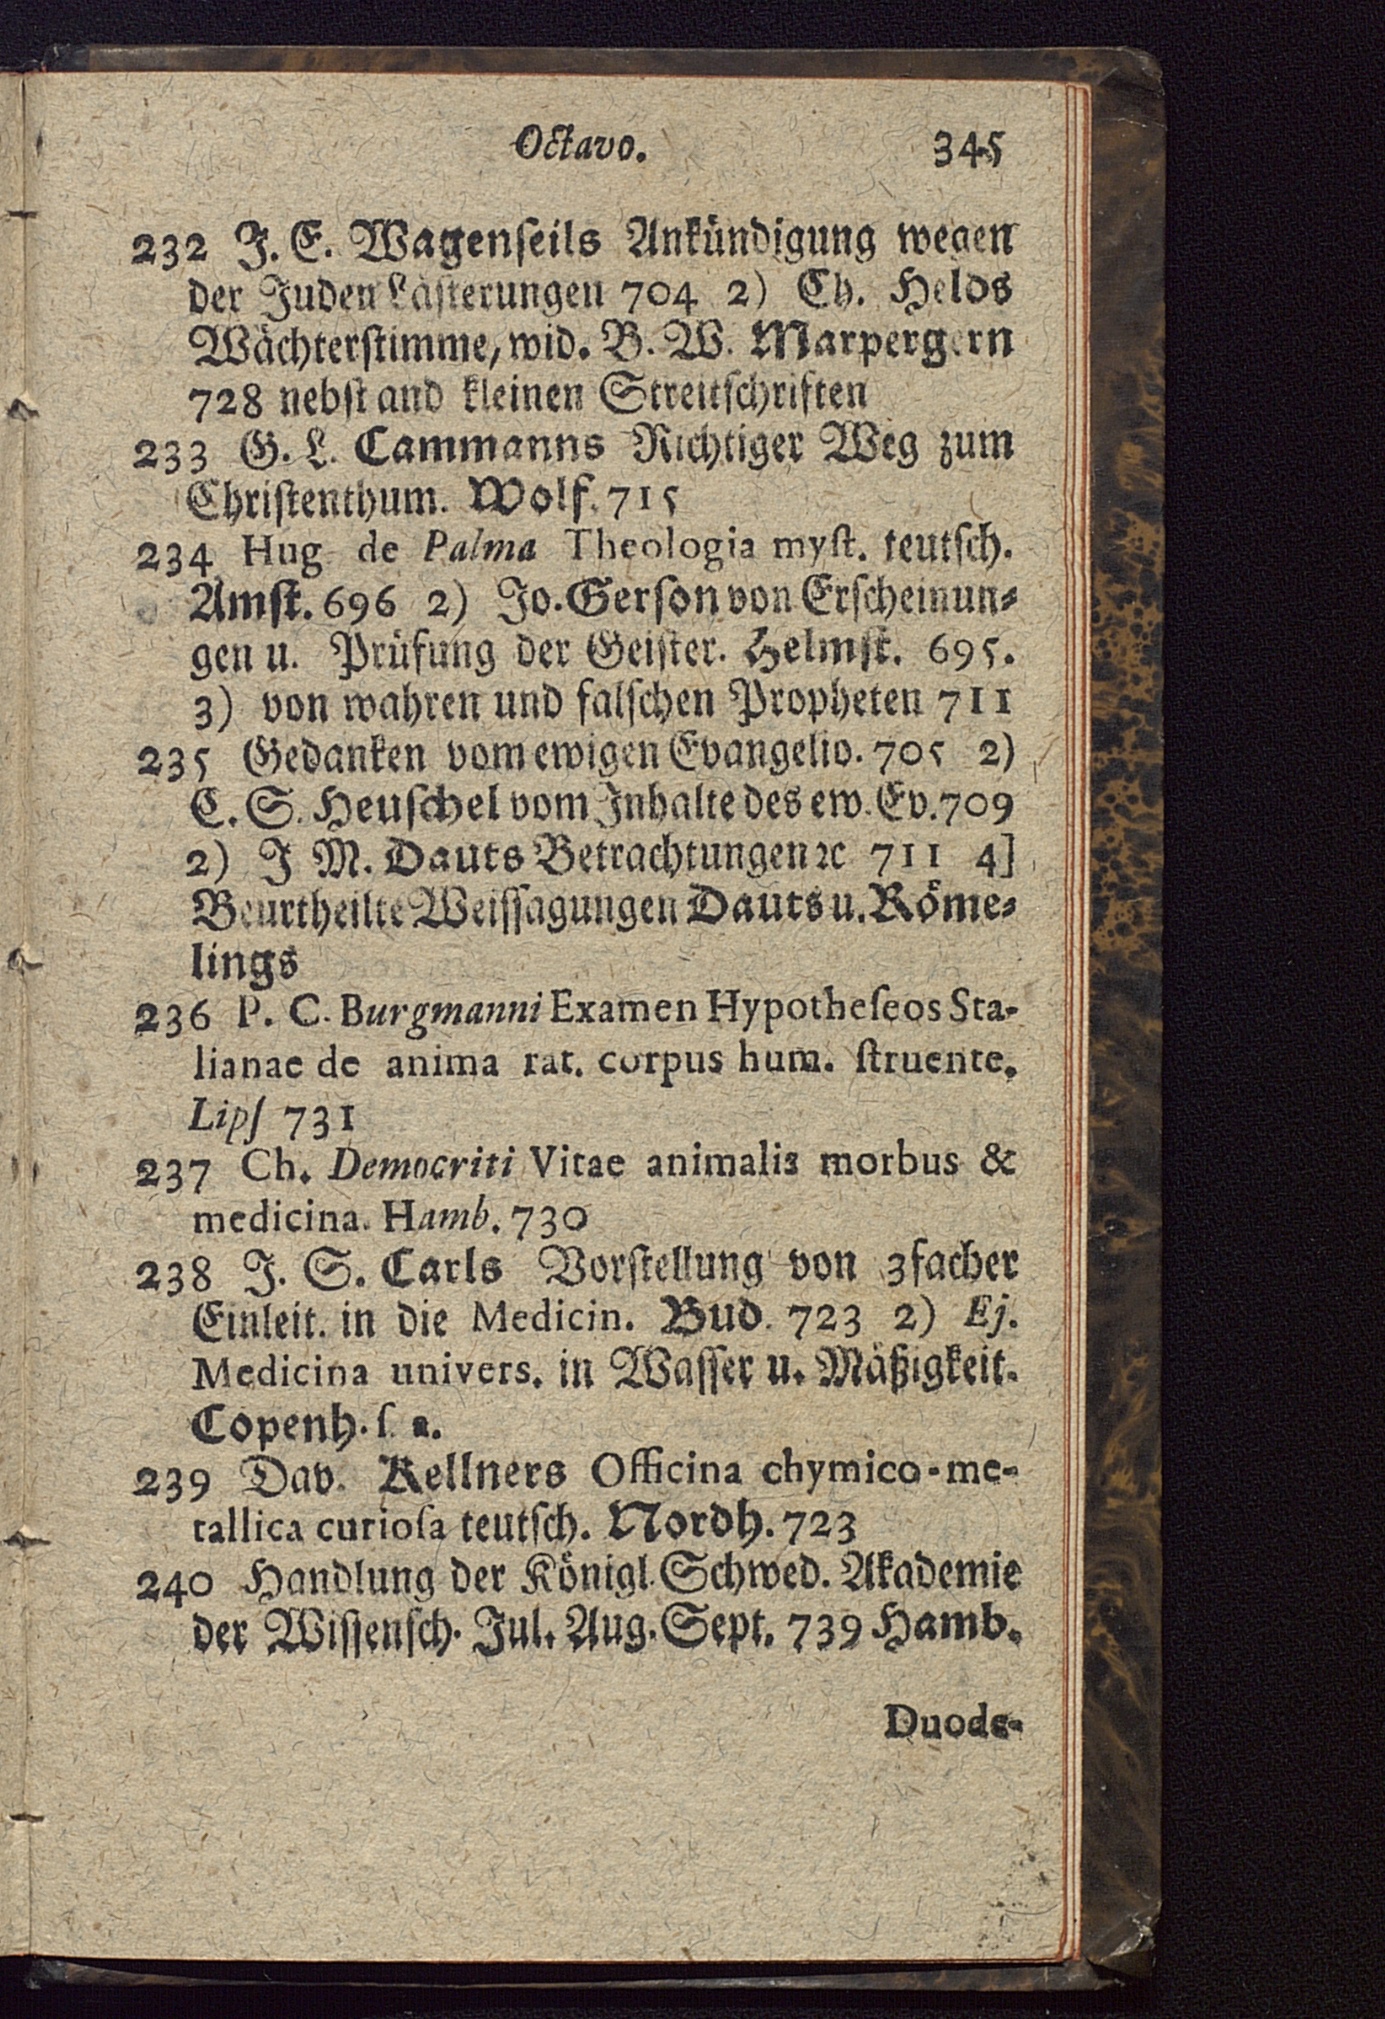 Octavo. 345
232 J. E. Wagenſeils Ankündigung wegen
der Juden Läſterungen 704 2) Ch. Helds
Wächterſtimme, wid. B. W. Marpergern
728 nebſt and kleinen Streitſchriften
233 G. L. Cammanns Richtiger Weg zum
Chriſtenthum. Wolf. 715
234 Hug de Palma Theologia myſt. teutſch.
Amſt. 696 2) Jo. Gerſon von Erſcheinun⸗
gen u. Prüfung der Geiſter. Helmſt. 695.
3) von wahren und falſchen Propheten 711
235 Gedanken vom ewigen Evangelio. 705 2)
C. S. Heuſchel vom Inhalte des ew. Ev. 709
2) J M. Dauts Betrachtungen ꝛc 711 4]
Beurtheilte Weiſſagungen Dauts u. Röme⸗
lings
236 P. C. Burgmanni Examen Hypotheſeos Sta-
lianae de anima rat. corpus hum. ſtruente.
Lipſ 731
237 Ch. Democriti Vitae animalis morbus &
medicina. Hamb. 730
238 J. S. Carls Vorſtellung von 3facher
Einleit. in die Medicin. Bud. 723 2) Ej.
Medicina univers. in Waſſer u. Mäßigkeit.
Copenh. ſ. a.
239 Dav. Kellners Officina chymico-me-
tallica curioſa teutſch. Nordh. 723
240 Handlung der Königl. Schwed. Akademie
der Wiſſenſch. Jul. Aug. Sept. 739 Hamb.
Duode-